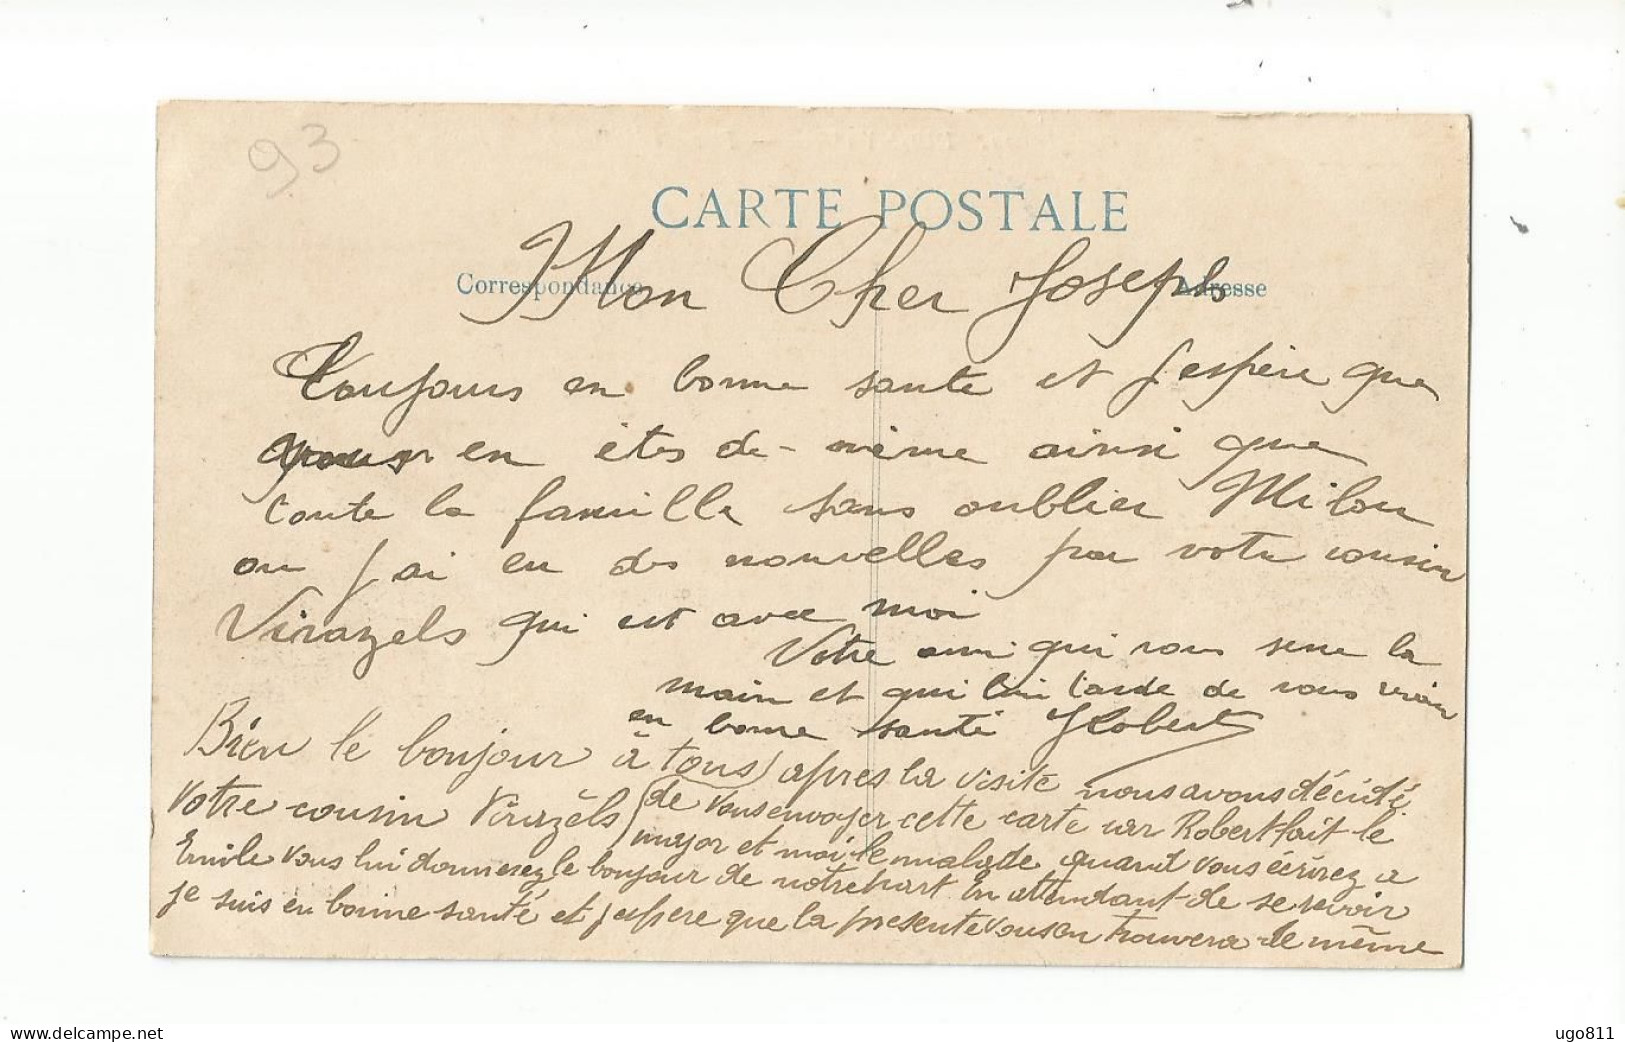 93
CARTE POSTALE
Correspondance Adresse
Mon Cher Joseph
Toujours en bonne sante et j'espère que
vous en êtes de-même ainsi que
toute la famille sans oublier Milou
ou j'ai eu des nouvelles par votre cousin
Virazels qui est avec moi
Votre ami qui vous serre la
main et qui lui tarde de vous revoir
en bonne santé Robert
Bien le bonjour à tous
votre cousin Virazèls
après la visite nous avons décidé
de vous envoyer cette carte car Robert fait le
major et moi le malade quand vous écrirez a
Emile vous lui donnerez le bonjour de notre part En attendant de se revoir
je suis en bonne santé et j'espere que la presente vous en trouvera de même
www.delcampe.net
ugo811